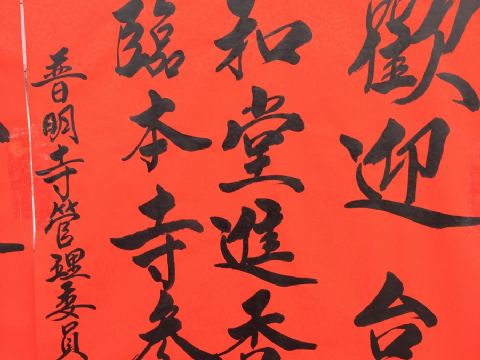 歡迎台
和堂進香
臨本寺参
普明寺管理委員